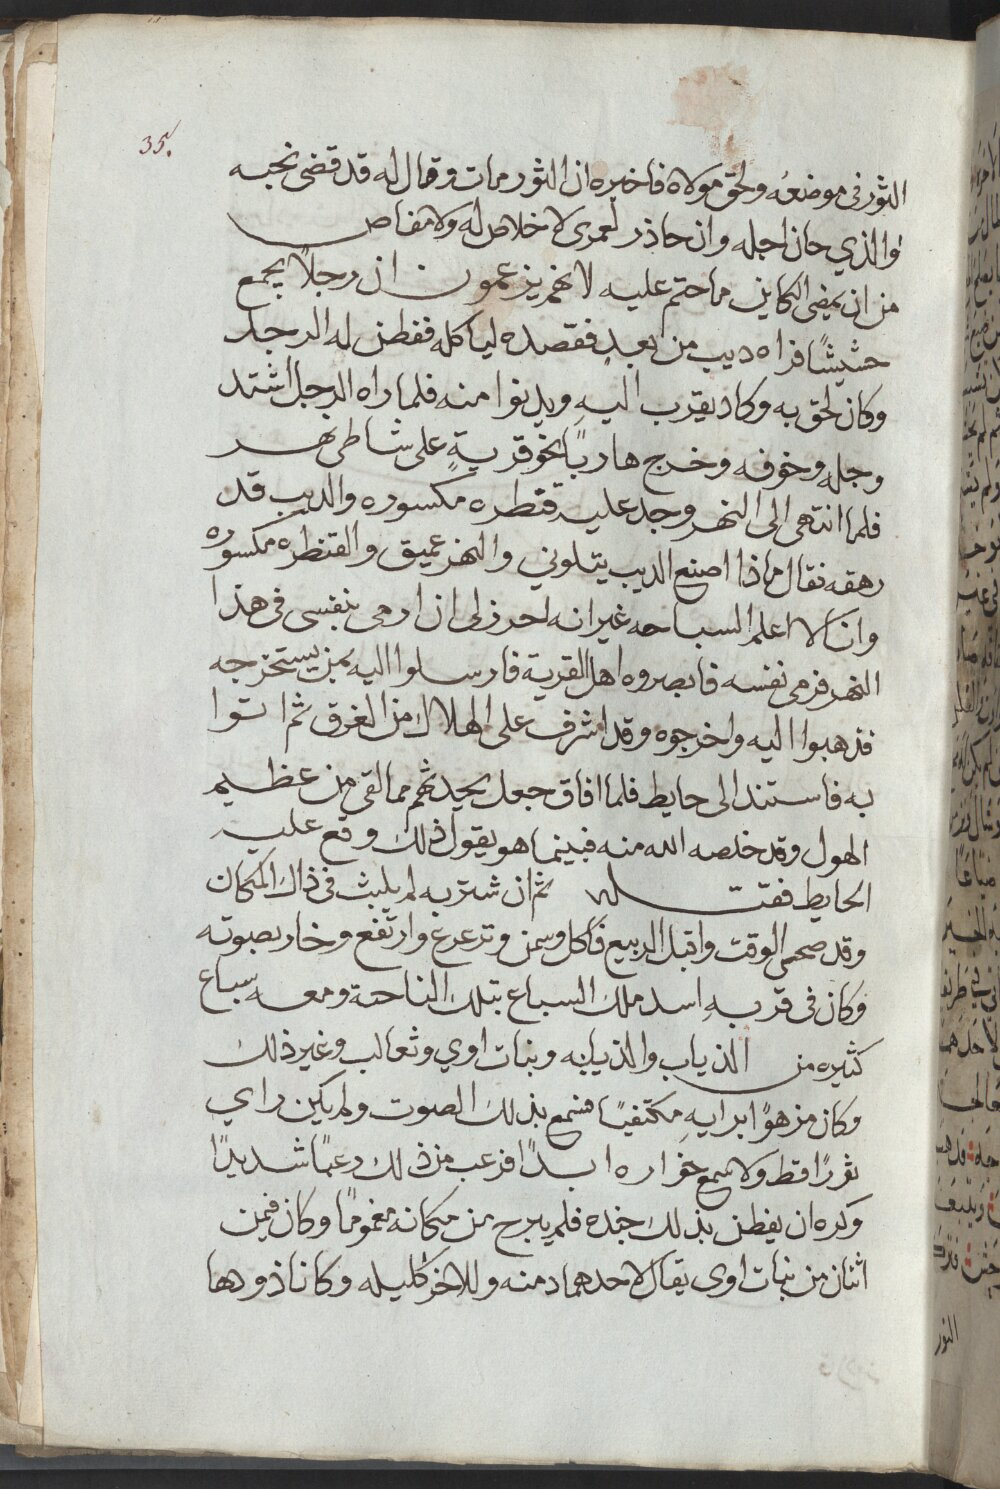 35.
الثور في موضعه ولحق مولاه فاخبره ان الثور مات وقال له قد قضى نحبه
والذي حان اجله وان حاذر لعمرى لا خلاص له ولا مفاص
من ان يمضى الكاين ما حتم عليه لانهم يزعمون ان رجلاً يجمع
حشيشًا فراه ديب من بعيدٍ فقصده لياكله ففطن له الرجل
وكان لحق به وكاد يقرب اليه ويدنوا منه فلما راه الرجل اشتد
وجله وخوفه وخرج هاربًا نحو قريةٍ على شاطى نهر
فلما انتهى الى النهر وجد عليه قنطره مكسوره والديب قد
رهقه فقال ماذا اصنع الديب يتلوني والنهر عميق والقنطره مكسوره
وانا لا اعلم السباحه غير انه احرز لى ان ارمى بنفسى فى هذا
النهر فرمى نفسه فابصروه اهل القرية فارسلوا اليه بمن يستخرجه
فذهبوا اليه واخرجوه وقد اشرف على الهلاك من الغرق ثم اتوا
به فاستند الى حايط فلما افاق جعل يحدثهم مما لقى من عظيم
الهول وقد خلصه الله منه فبينما هو يقول ذلك وقع عليه
الحايط فقتله ثم ان شتربه لم يلبث فى ذاك المكان
وقد صحى الوقت واقبل الربيع فاكل وسمن وترعرع وارتفع وخار بصوته
وكان فى قربه اسد ملك السباع بتلك الناحية ومعه سباع
كثيره من الذياب والذيابه وبنات اوي وثعالب وغير ذلك
وكان مزهوًا برايهِ مكتفيًا فسمع بذلك الصوت ولم يكن راي
ثورًا قط ولا سمع خواره ابدًا فرعب من ذلك رعبًا شديدًا
وكره ان يفطن بذلك جنده فلم يبرح من مكانه مغمومًا وكان فيمن
اثنان من بنات اوى يقال لاحدهما دمنه وللاخر كليله وكانا ذو دها